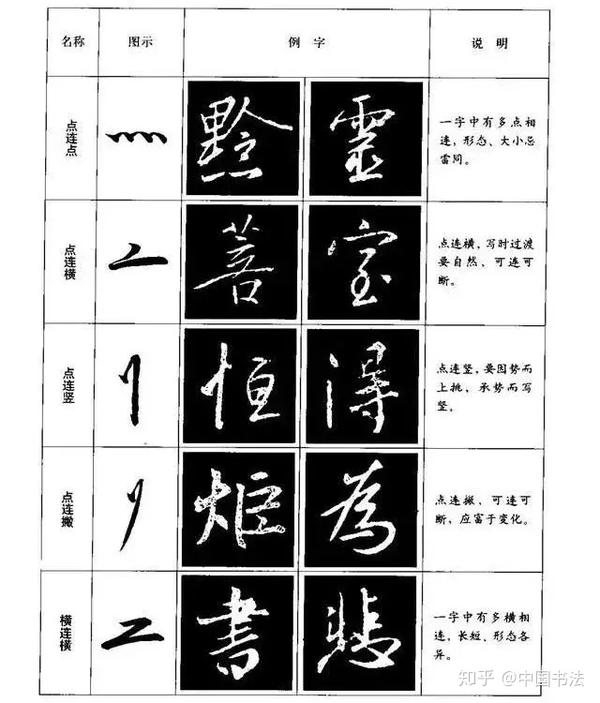 名称 图示 例字 说明
点连点
黔 靈
一字中有多点相
连，形态、大小忌
雷同。
点连横
菩 室
点连横，写时过渡
要自然、可连可
断。
点连竖
恒 得
点连竖，要因势而
上挑，承势而写
竖。
点连撇
炬 為
点连撇、可连可
断，应富于变化。
横连横
書 悲
一字中有多横相
连，长短、形态各
异。
知乎 @中国书法